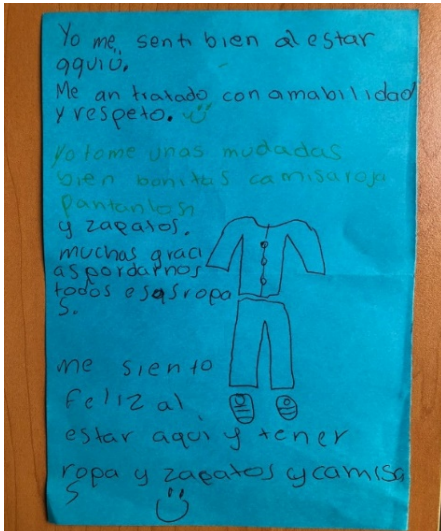 Yo me senti bien al estar
aquiü.
Me an tratado con amabilidad
y respeto.
yo tome unas mudadas
bien bonitas camisaroja
pantanlosn
y zapatos.
muchas graci
aspordarnos
todos esasropa
s.
me siento
feliz al
estar aqui y tener
ropa y zapatos y camisa
s